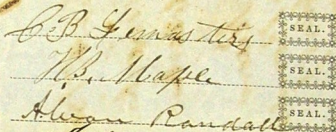 C. B. Lemasters SEAL.
W. B. Maple SEAL.
Alvan Randall SEAL.